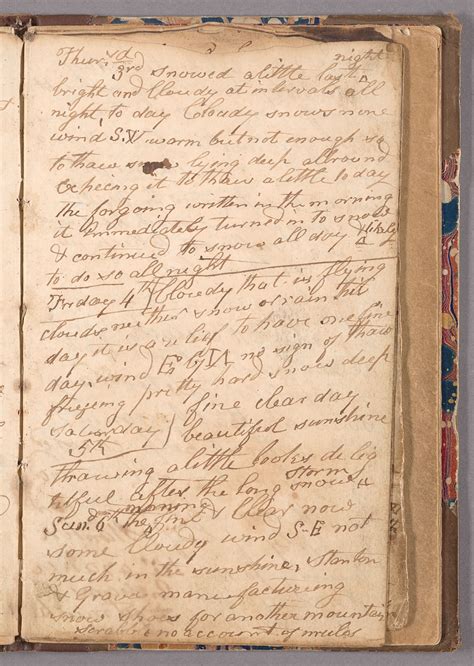 Thurs. 3rd snowed a little last night
bright and Cloudy at intervals all
night, to day Cloudy snows none
wind, S.W warm but not enough so
to thaw snow lying deep all round
expecing it to thaw a little to day
the forgoing written in the morning
it immediately turned in to snow
& continued to snow all day &
to do so all night
Friday 4th Cloudy that is flying
clouds neither snow or rain this
day it is a relief to have one fine
day, wind E. by N no sign of thaw
freeing pretty hard snow deep
Saturday fine clear day
5th beautiful sunshine
thawing a little looks delig
tiful after the long snow storm
Sun. 6th morning the fine & clear now
some Cloudy wind S-E not
much in the sunshine, Stanton
& Graves manufactureing
snow shoes for another mountain
scrable no account of mules